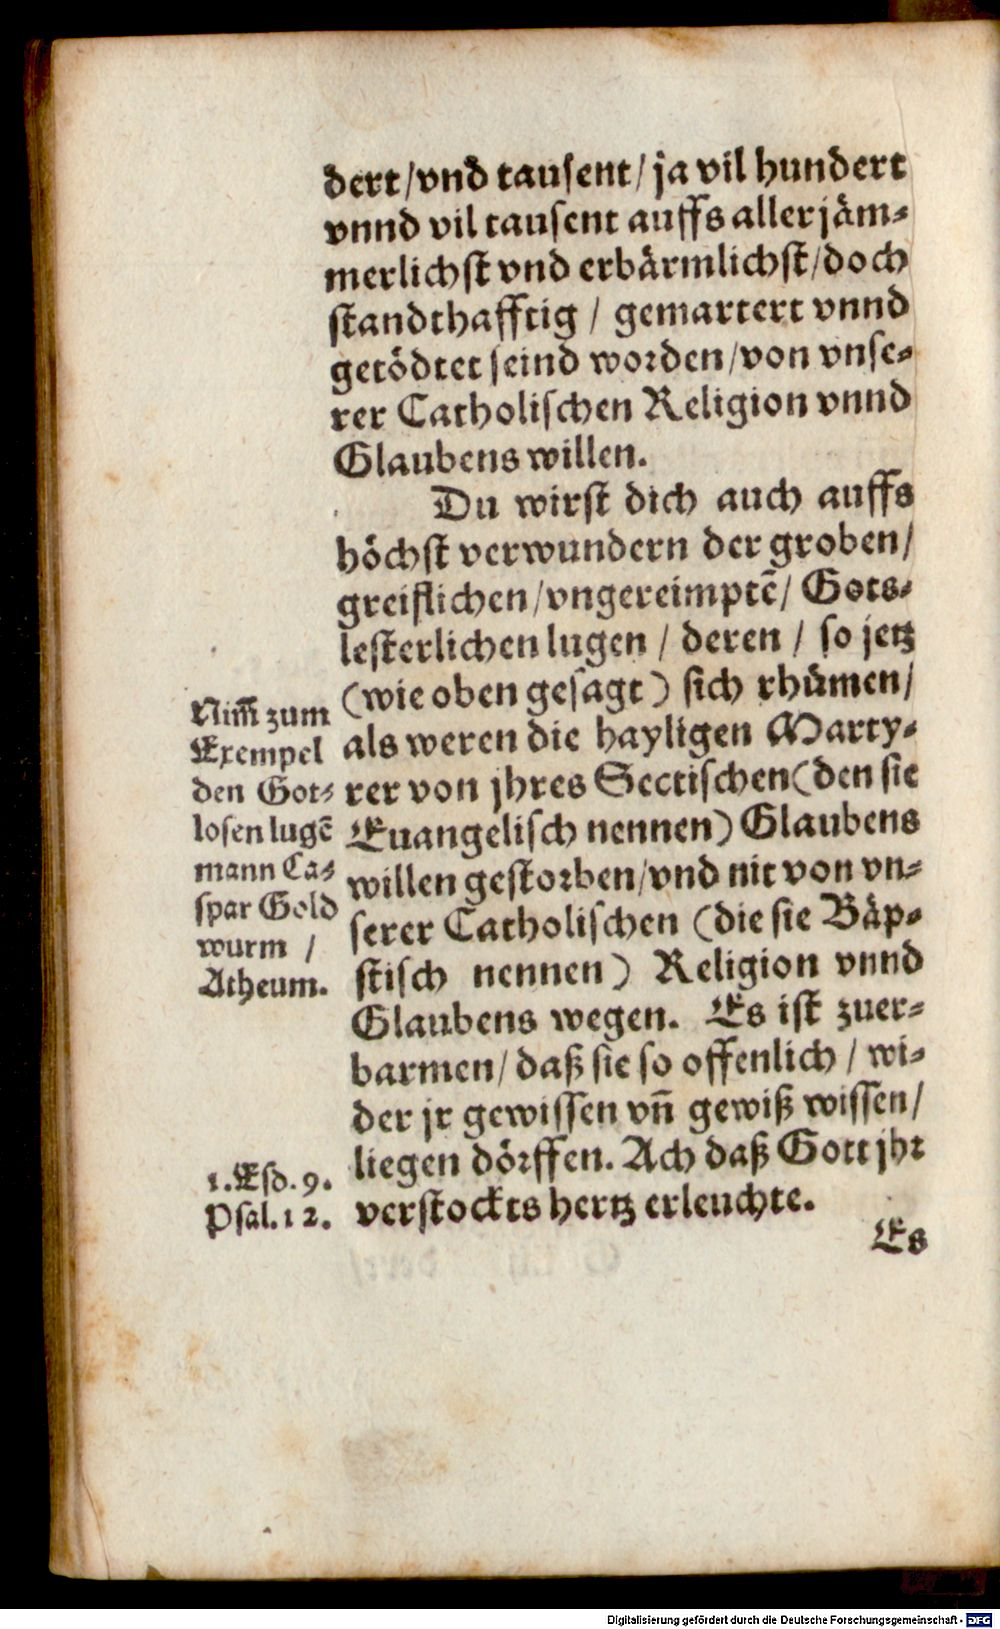 dert/vnd tausent/ja vil hundert
vnnd vil tausent auffs aller jäm-
merlichst vnd erbärmlichst/doch
standthafftig / gemartert vnnd
getödtet seind worden/von vnse-
rer Catholischen Religion vnnd
Glaubens willen.
Du wirst dich auch auffs
höchst verwundern der groben/
greiflichen/vngereimptē/ Gots-
lesterlichen lugen / deren / so jetz
(wie oben gesagt) sich rhümen/
als weren die hayligen Marty-
rer von jhres Sectischen(den sie
Euangelisch nennen) Glaubens
willen gestorben/vnd nit von vn-
serer Catholischen (die sie Bäp-
stisch nennen) Religion vnnd
Glaubens wegen. Es ist zuer-
barmen/daß sie so offenlich / wi-
der jr gewissen vn̄ gewiß wissen/
liegen dörffen. Ach daß Gott jhr
verstockts hertz erleuchte.
Es
Nim̄ zum
Exempel
den Got-
losen lugē
mann Ca-
spar Gold
wurm /
Atheum.
1.Esd.9.
Psal.12.
Digitalisierung gefördert durch die Deutsche Forschungsgemeinschaft - DFG